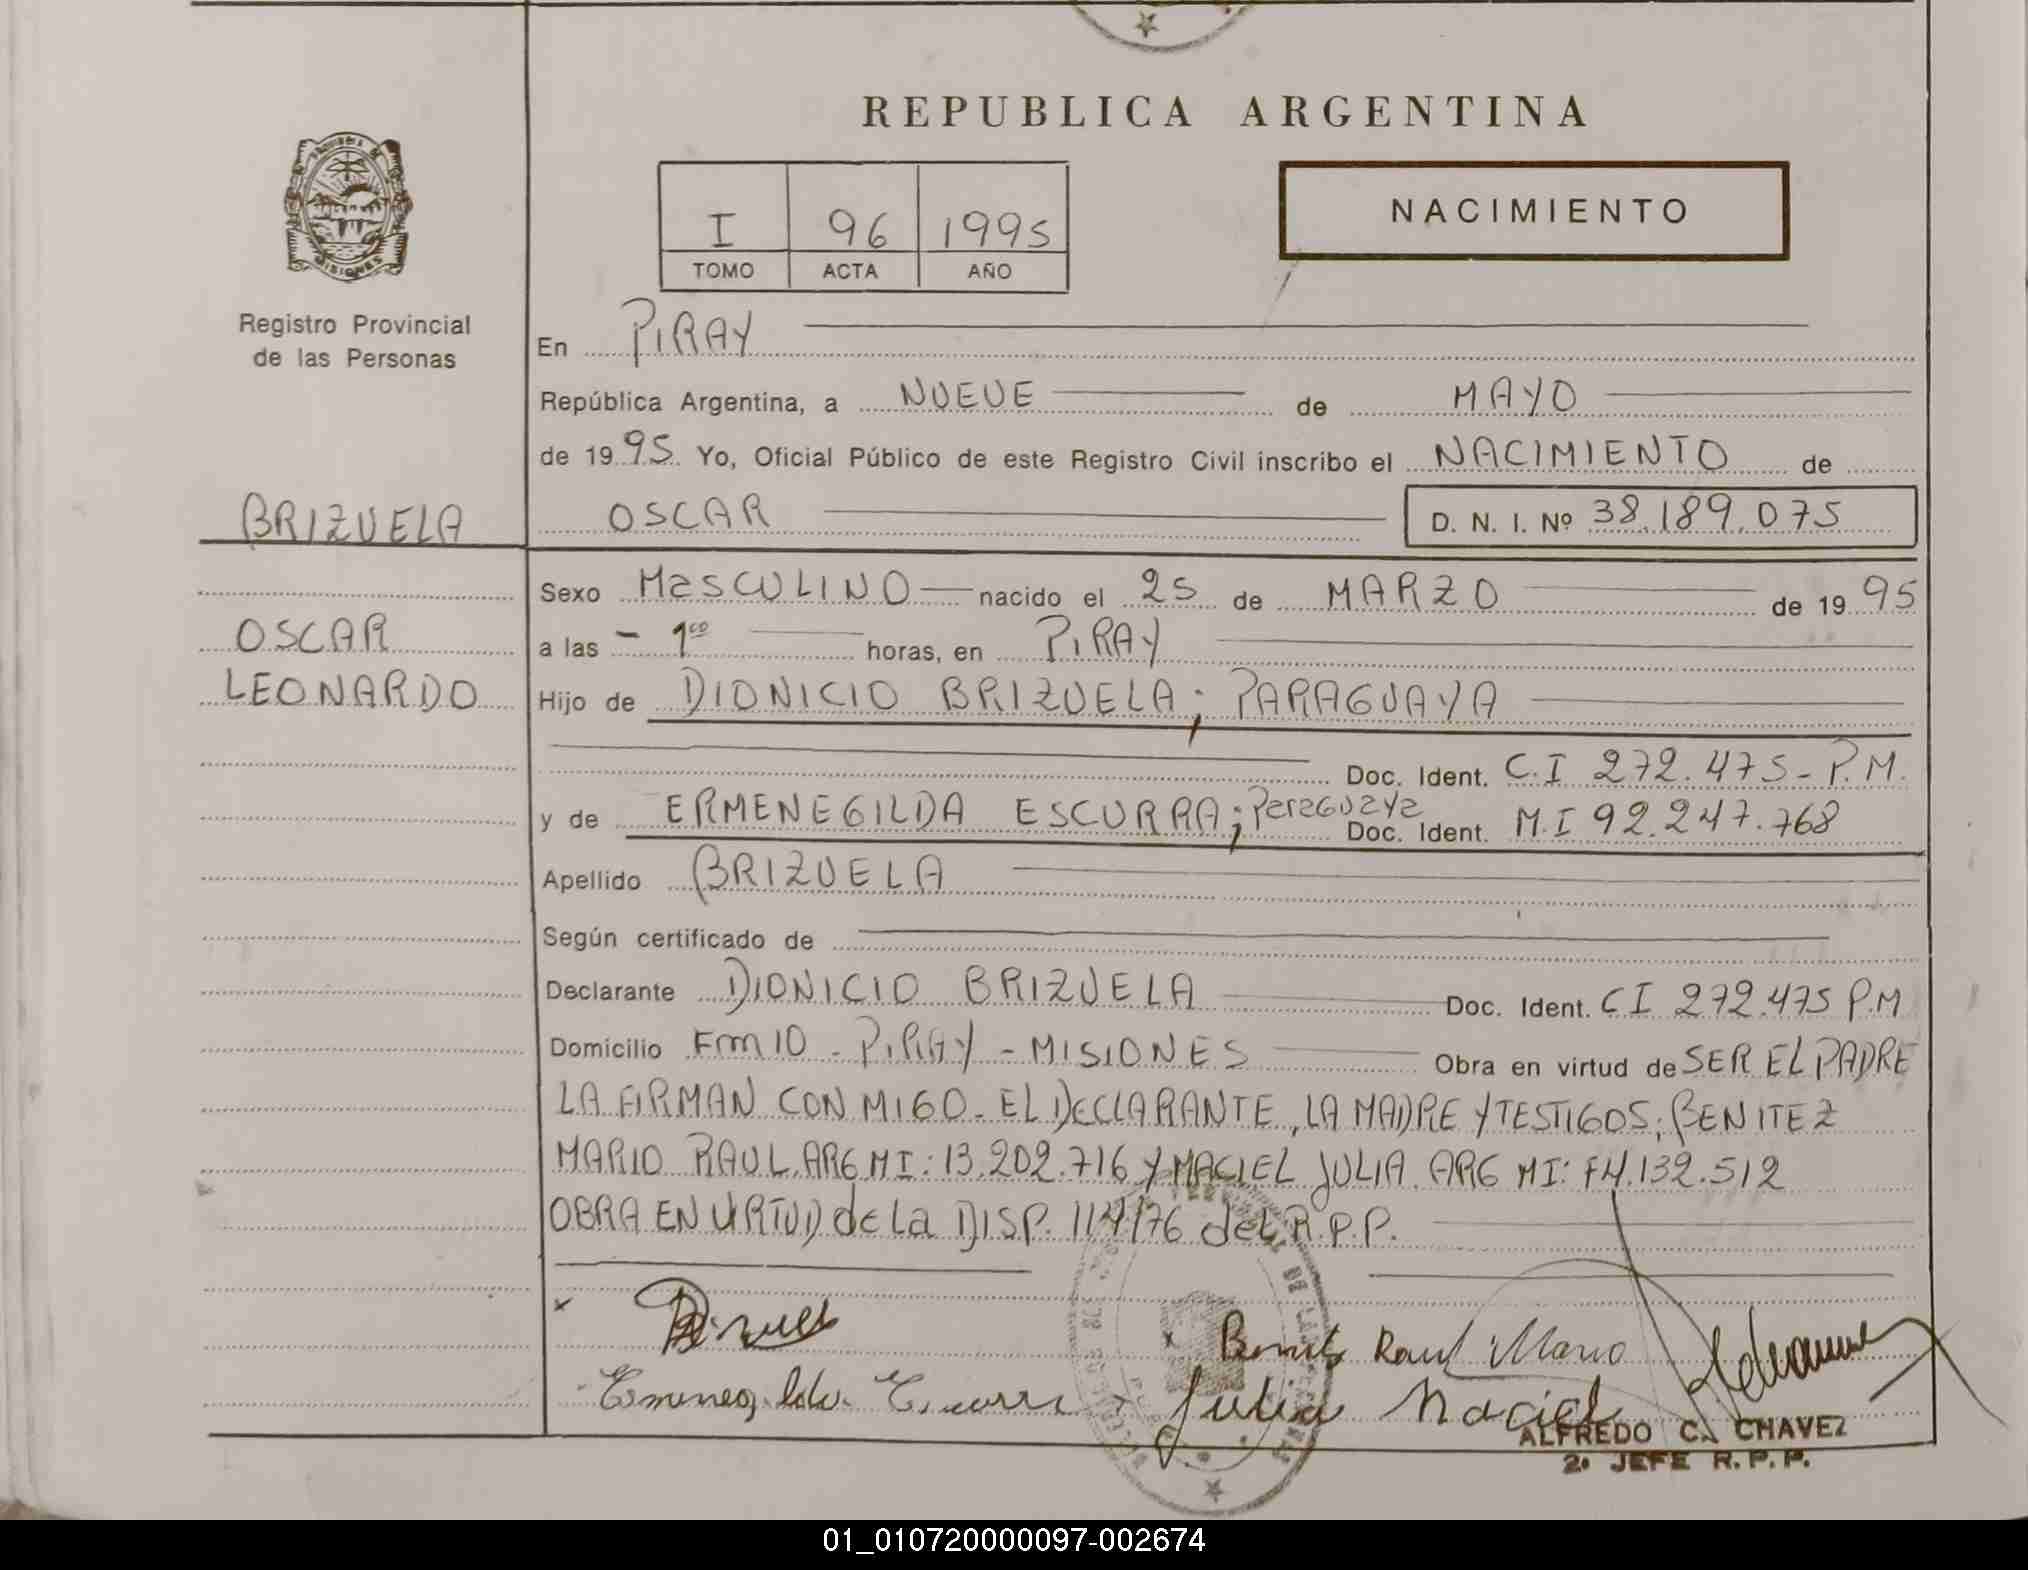 REPUBLICA ARGENTINA
I 96 1995
TOMO ACTA AÑO
NACIMIENTO
MISIONES
Registro Provincial
de las Personas
En PIRAY
República Argentina, a NUEVE de MAYO
de 1995 Yo, Oficial Público de este Registro Civil inscribo el NACIMIENTO de
BRIZUELA
OSCAR D. N. I. Nº 38.189.075
Sexo MASCULINO nacido el 25 de MARZO de 1995
OSCAR
a las - 1 horas, en PIRAY
LEONARDO
Hijo de DIONICIO BRIZUELA; PARAGUAYA
Doc. Ident. C.I 272.475-P.M.
y de ERMENEGILDA ESCURRA; Paraguaya Doc. Ident. M.I 92.247.768
Apellido BRIZUELA
Según certificado de
Declarante DIONICIO BRIZUELA Doc. Ident. CI 272.475 P.M
Domicilio Km 10 - PIRAY - MISIONES Obra en virtud de SER EL PADRE
LA FIRMAN CON MIGO - EL DECLARANTE, LA MADRE Y TESTIGOS; BENITEZ
MARIO RAUL. ARG MI: 13.202.716 Y MACIEL JULIA. ARG MI: F4.132.512
OBRA EN VIRTUD de La DISP. 114/76 del R.P.P.
Raul Mario
Julia Maciel
ALFREDO C. CHAVEZ
2º JEFE R.P.P.
01_010720000097-002674